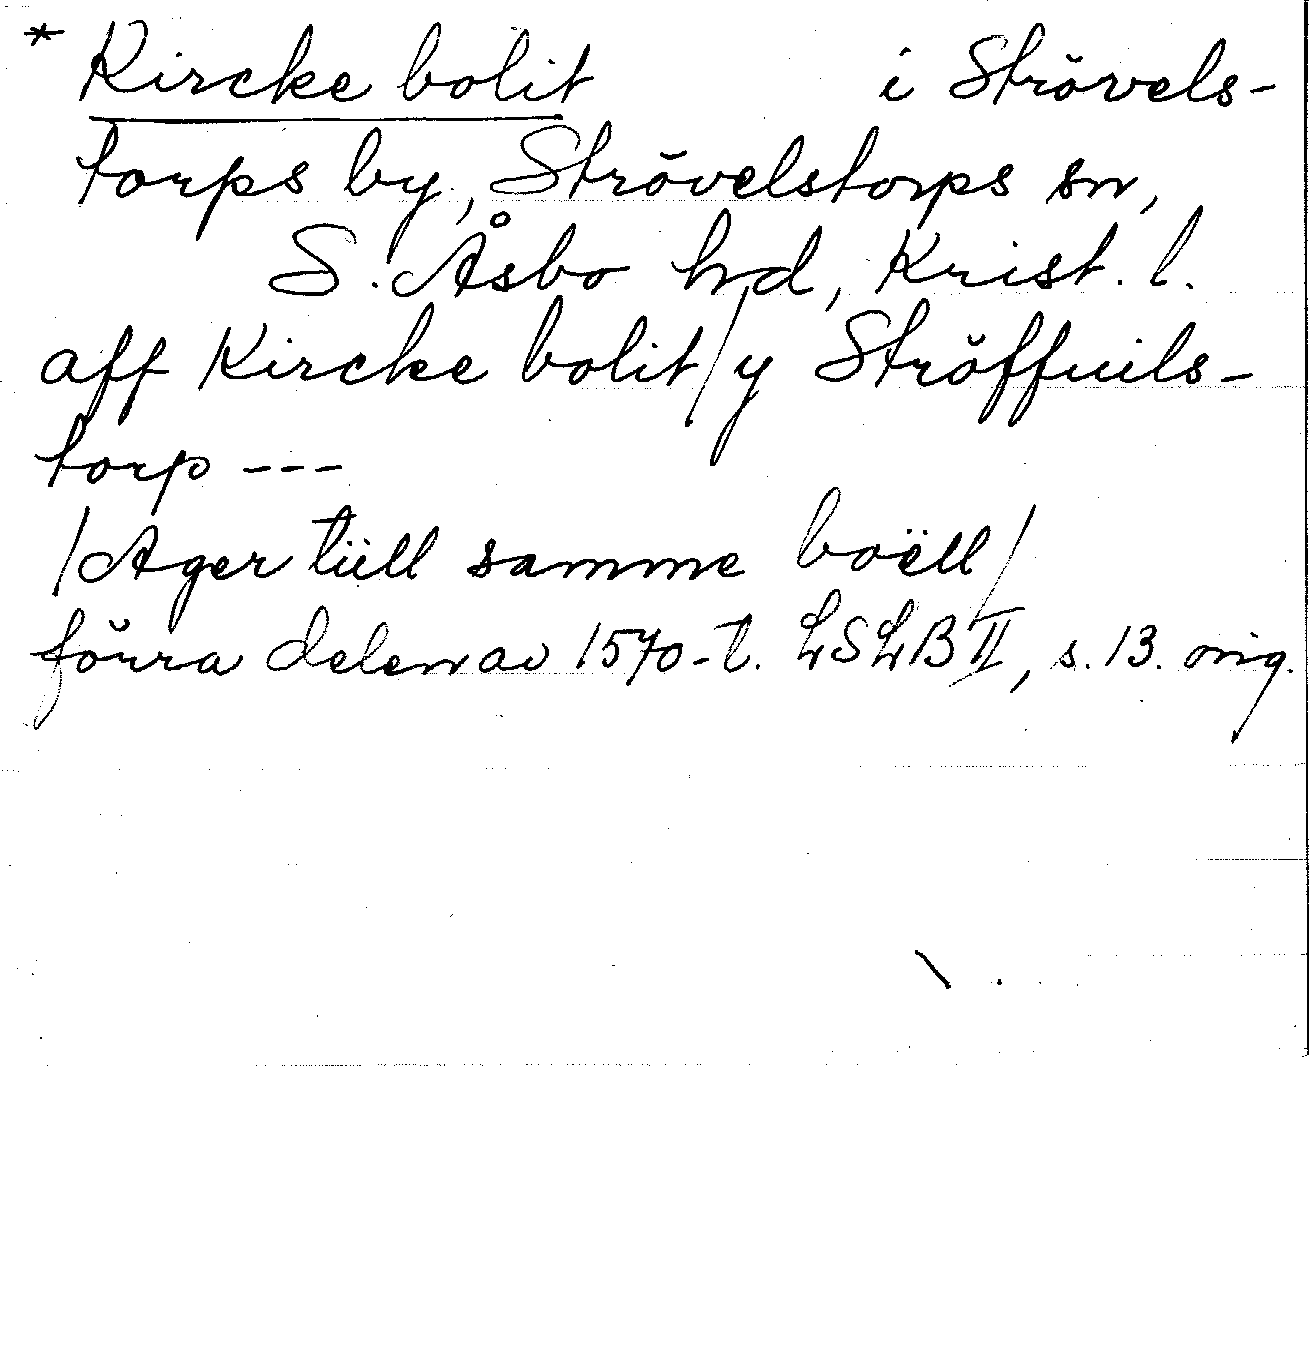 * Kircke bolit i Strövels-
torps by, Strövelstorps sn,
S. Åsbo hd, Krist. l.
aff Kircke bolit/y Ströffuils-
torp ---
/Ager tüll samme boëll/
förra delen av 1570-t. LSLB II, s. 13. orig.